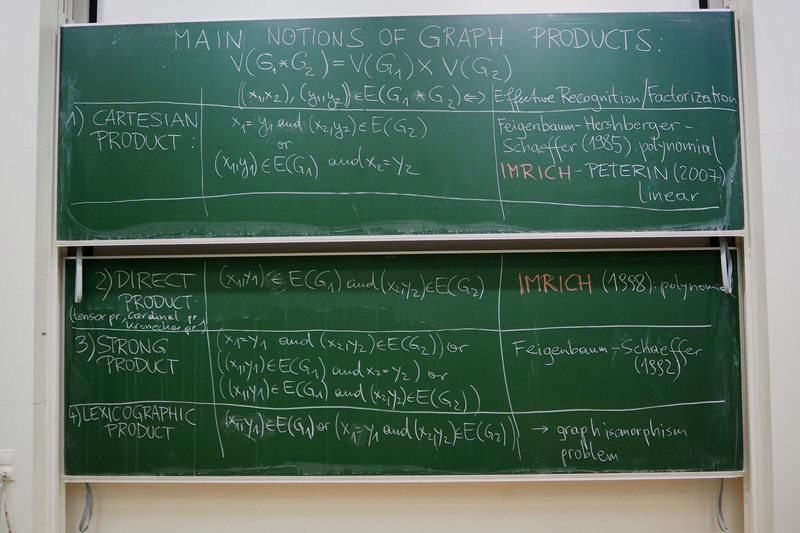 MAIN NOTIONS OF GRAPH PRODUCTS:
V(G₁*G₂) = V(G₁) × V(G₂)
((x₁,x₂), (y₁,y₂)) ∈ E(G₁*G₂) ⇔ Effective Recognition/Factorization
1) CARTESIAN PRODUCT:
x₁=y₁ and (x₂,y₂) ∈ E(G₂)
or
(x₁,y₁) ∈ E(G₁) and x₂=y₂
Feigenbaum-Hershberger-
Schaeffer (1985). polynomial
IMRICH-PETERIN (2007).
linear
2) DIRECT
PRODUCT:
(tensor pr., cardinal pr.,
Kronecker pr.)
(x₁,y₁) ∈ E(G₁) and (x₂,y₂) ∈ E(G₂)
IMRICH (1998). polynomial
3) STRONG
PRODUCT
(x₁=y₁ and (x₂,y₂) ∈ E(G₂)) or
((x₁,y₁) ∈ E(G₁) and x₂=y₂) or
((x₁,y₁) ∈ E(G₁) and (x₂,y₂) ∈ E(G₂))
Feigenbaum-Schaeffer
(1992)
4) LEXICOGRAPHIC
PRODUCT
(x₁,y₁) ∈ E(G₁) or (x₁=y₁ and (x₂,y₂) ∈ E(G₂))
→ graph isomorphism
problem